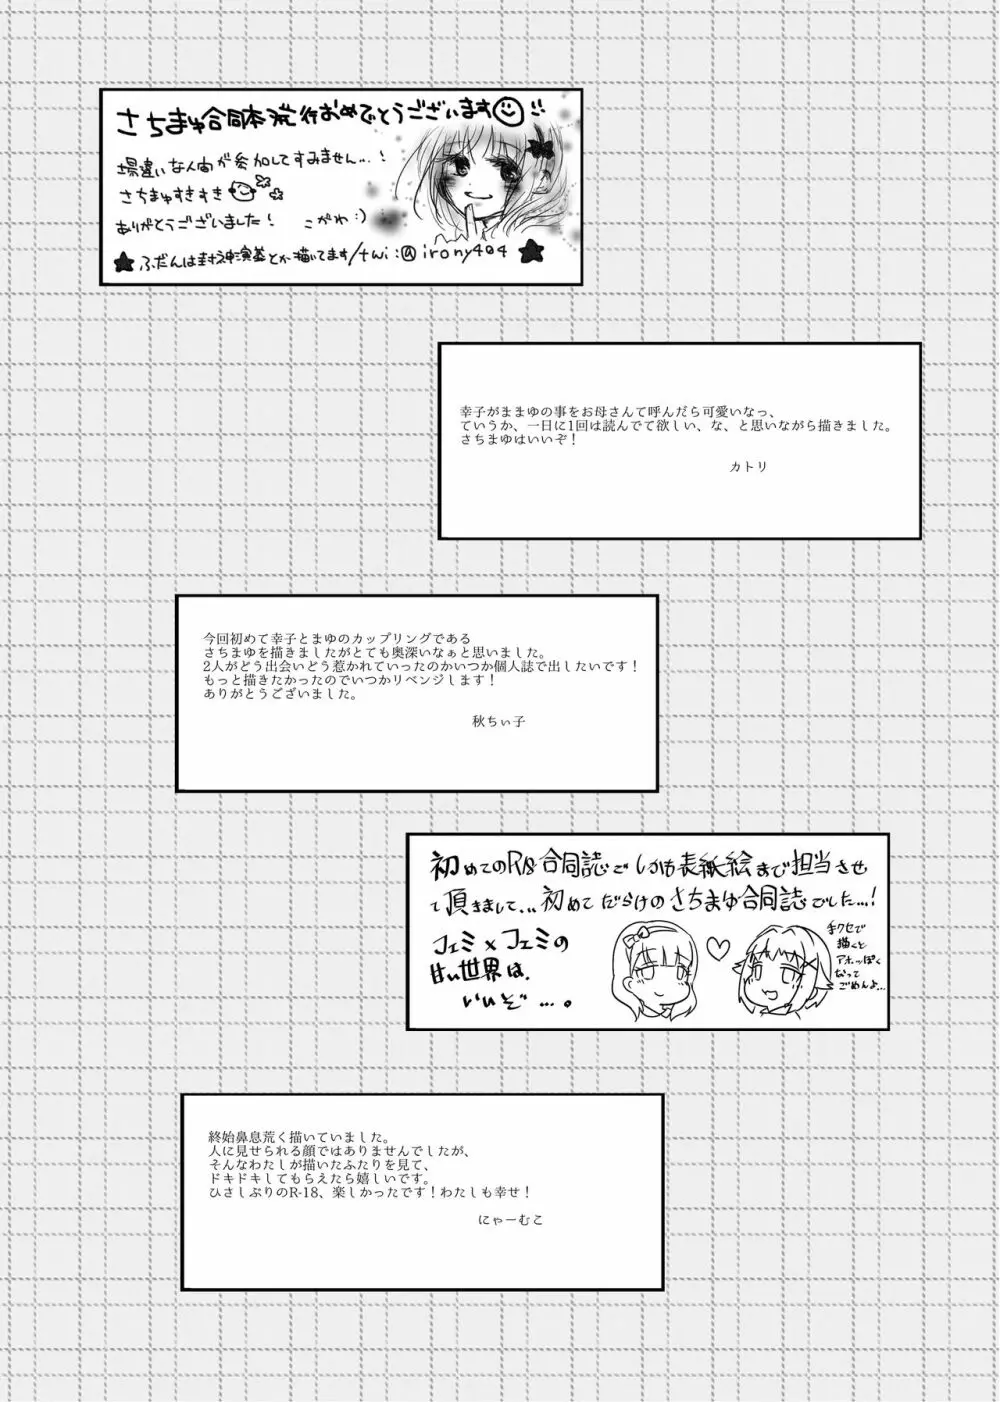 さちまゅ合同本発行おめでとうございます
場違いな人間が参加してすみません…！
さちまゅすきすき
ありがとうございました！ こがわ:)
★ふだんは封神演義とか描いてます/twi:@irony404★
幸子がままゆの事をお母さんて呼んだら可愛いなっ、
ていうか、一日に1回は読んでて欲しい、な、と思いながら描きました。
さちまゆはいいぞ！
カトリ
今回初めて幸子とまゆのカップリングである
さちまゆを描きましたがとても奥深いなぁと思いました。
2人がどう出会いどう惹かれていったのかいつか個人誌で出したいです！
もっと描きたかったのでいつかリベンジします！
ありがとうございました。
秋ちぃ子
初めてのR18合同誌でしかも表紙絵まで担当させ
て頂きまして、、、初めてだらけのさちまゆ合同誌でした…！
フェミ×フェミの
甘い世界は、
いいぞ…。
手クセで
描くと
アホっぽく
なって
ごめんよ…
終始鼻息荒く描いていました。
人に見せられる顔ではありませんでしたが、
そんなわたしが描いたふたりを見て、
ドキドキしてもらえたら嬉しいです。
ひさしぶりのR-18、楽しかったです！わたしも幸せ！
にゃーむこ